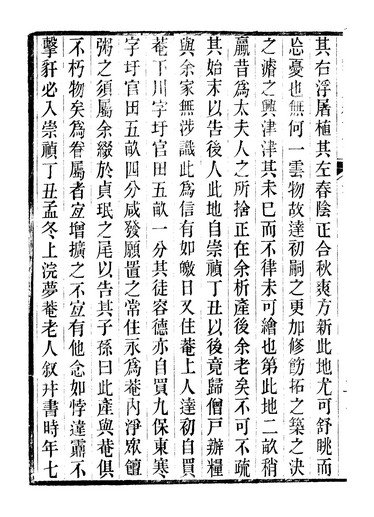 其右浮屠植其左春陰正合秋爽方新此地尤可舒眺而
忘憂也無何一雲物故達初嗣之更加修飭拓之築之決
之濬之興津津其未巳而不律未可繪也第此地二畝稍
贏昔爲太夫人之所捨正在余析產後余老矣不可不疏
其始末以告後人此地自崇禎丁丑以後竟歸僧戸辦糧
與余家無涉識此爲信有如皦日又住菴上人達初自買
菴下川字圩官田五畝一分其徒容德亦自買九保東寒
字圩官田五畝四分咸發願置之常住永爲菴內淨衆饘
粥之須屬余綴於貞珉之尾以告其子孫曰此產與菴俱
不朽物矣爲眷屬者宐增擴之不宐有他念如悖達霝不
擊豻必入崇禎丁丑孟冬上浣夢菴老人叙幷書時年七